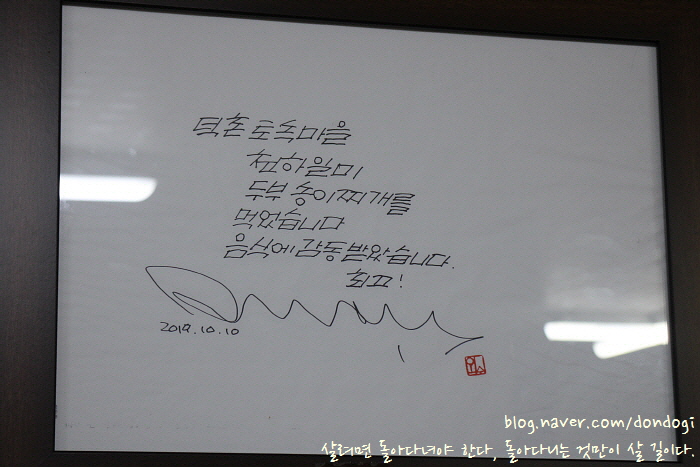 덕촌 토속마을
천하일미
두부 송이찌개를
먹었습니다
음식에 감동받았습니다.
최고!
2019.10.10
blog.naver.com/dondogi
살려면 돌아다녀야 한다, 돌아다니는 것만이 살 길이다.